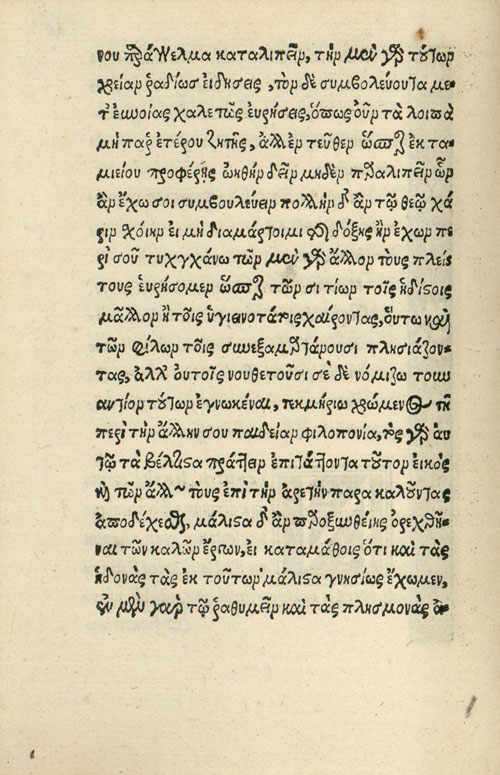 νου πρᾶγγελμα καταλιπεῖν, τὴν μὲν γὰρ τούτων
χρείαν ῥαδίως εἰδήσεις, τὸν δὲ συμβολεύοντα με-
τ᾽ εὐνοίας χαλεπῶς εὑρήσεις, ὅπως οὖν τὰ λοιπὰ
μὴ παρ᾽ ἑτέρου ζητῇς, ἀλλ᾽ ἐντεῦθεν ὥσπερ ἐκ τα-
μιείου προφέρῃς ὠήθην δεῖν μηδὲν παραλιπεῖν ὧν
ἂν ἔχω σοι συμβουλεύειν πολλὴν δ᾽ ἂν τῷ θεῷ χά
ριν σχοίην εἰ μὴ διαμάρτοιμι τῆς δόξης ἣν ἔχων πε
ρὶ σοῦ τυγχάνω τῶν μὲν γὰρ ἄλλων τοὺς πλείσ
τους εὑρήσομεν ὥσπερ τῶν σιτίων τοῖς ἡδίστοις
μᾶλλον ἢ τοῖς ὑγιεινοτάτοις χαίροντας, οὕτω καὶ
τῶν φίλων τοῖς συνεξαμαρτάνουσι πλησιάζον-
τας, ἀλλ᾽ οὐ τοῖς νουθετοῦσι σὲ δὲ νομίζω τοὐν
αντίον τούτων ἐγνωκέναι, τεκμηρίῳ χρώμενος τῇ
περὶ τὴν ἄλλην σου παιδείαν φιλοπονίᾳ, τὸν γὰρ αὑ
τῷ τὰ βέλτιστα πράττειν ἐπιτάττοντα τοῦτον εἰκὸς
καὶ τῶν ἄλλων τοὺς ἐπὶ τὴν ἀρετὴν παρακαλοῦντας
ἀποδέχεσθαι, μάλιστα δ᾽ ἂν παροξυνθείης ὀρεχθῆ-
ναι τῶν καλῶν ἔργων, εἰ καταμάθοις ὅτι καὶ τὰς
ἡδονὰς τὰς ἐκ τούτων μάλιστα γνησίως ἔχωμεν,
ἐν μὲν γὰρ τῷ ῥαθυμεῖν καὶ τὰς πλησμονὰς ἀ-